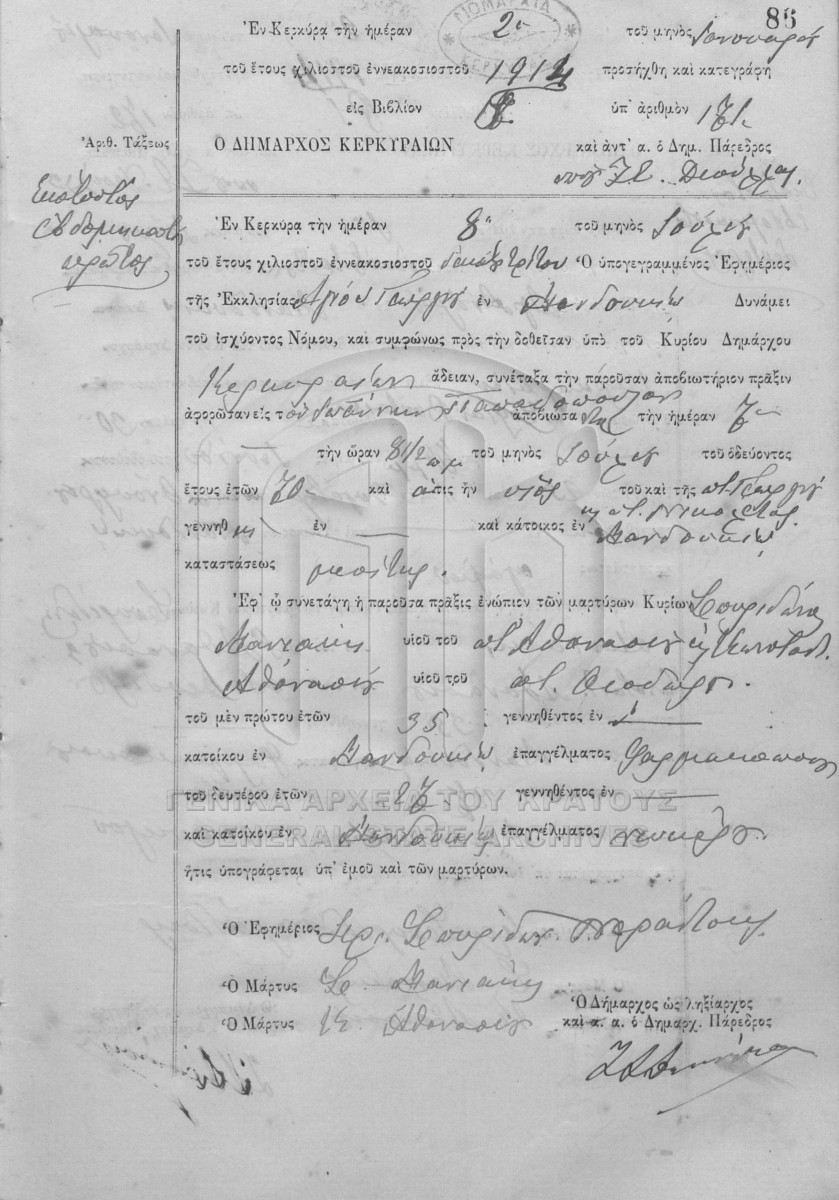 86
ΝΟΜΑΡΧΙΑ
Ἐν Κερκύρᾳ τὴν ἡμέραν 2α τοῦ μηνὸς Ἰανουαρίου
τοῦ ἔτους χιλιοστοῦ ἐννεακοσιοστοῦ 1914 προσήχθη καὶ κατεγράφη
εἰς Βιβλίον ὑπ' ἀριθμὸν 171
Ἀριθ. Τάξεως
Ο ΔΗΜΑΡΧΟΣ ΚΕΡΚΥΡΑΙΩΝ καὶ ἀντ' α. ὁ Δημ. Πάρεδρος
Ἑκατοστὸς
ἑβδομηκοστὸς
πρῶτος
Ἐν Κερκύρᾳ τὴν ἡμέραν 8η τοῦ μηνὸς Ἰουλίου
τοῦ ἔτους χιλιοστοῦ ἐννεακοσιοστοῦ δεκάτου τρίτου Ὁ ὑπογεγραμμένος Ἐφημέριος
τῆς Ἐκκλησίας Ἁγίου Γεωργίου ἐν Μανδουκίῳ Δυνάμει
τοῦ ἰσχύοντος Νόμου, καὶ συμφώνως πρὸς τὴν δοθεῖσαν ὑπὸ τοῦ Κυρίου Δημάρχου
Κερκυραίων ἄδειαν, συνέταξα τὴν παροῦσαν ἀποβιωτήριον πρᾶξιν
ἀφορῶσαν εἰς τὸν Ἰωάννην Παπαδόπουλον ἀποβιώσαντα τὴν ἡμέραν 7η
τὴν ὥραν 8 1/2 π.μ. τοῦ μηνὸς Ἰουλίου τοῦ ὁδεύοντος
ἔτους ἐτῶν 70 καὶ ὅστις ἦν υἱὸς τοῦ καὶ τῆς ποτ. Γεωργίου
γεννηθεὶς ἐν — καὶ κάτοικος ἐν Μανδουκίῳ
καταστάσεως μεσίτης.
Ἐφ' ᾧ συνετάγη ἡ παροῦσα πρᾶξις ἐνώπιον τῶν μαρτύρων Κυρίων Σπυρίδωνα
Μανιάκης υἱοῦ τοῦ ποτ. Ἀθανασίου καὶ Κωνσταντ.
Ἀθανασίου υἱοῦ τοῦ ποτ. Θεοδώρου.
τοῦ μὲν πρώτου ἐτῶν 35 γεννηθέντος ἐν —
κατοίκου ἐν Μανδουκίῳ ἐπαγγέλματος Φαρμακοποιοῦ
τοῦ δευτέρου ἐτῶν 27 γεννηθέντος ἐν —
ΓΕΝΙΚΑ ΑΡΧΕΙΑ ΤΟΥ ΚΡΑΤΟΥΣ
καὶ κατοίκου ἐν Μανδουκίῳ ἐπαγγέλματος
GENERAL STATE ARCHIVES
ἥτις ὑπογράφεται ὑπ' ἐμοῦ καὶ τῶν μαρτύρων.
Ὁ Ἐφημέριος Ἱερ. Σπυρίδων
Ὁ Μάρτυς Σ. Μανιάκης
Ὁ Δήμαρχος ὡς ληξίαρχος
Ὁ Μάρτυς Κ. Ἀθανασίου καὶ α. α. ὁ Δημαρχ. Πάρεδρος